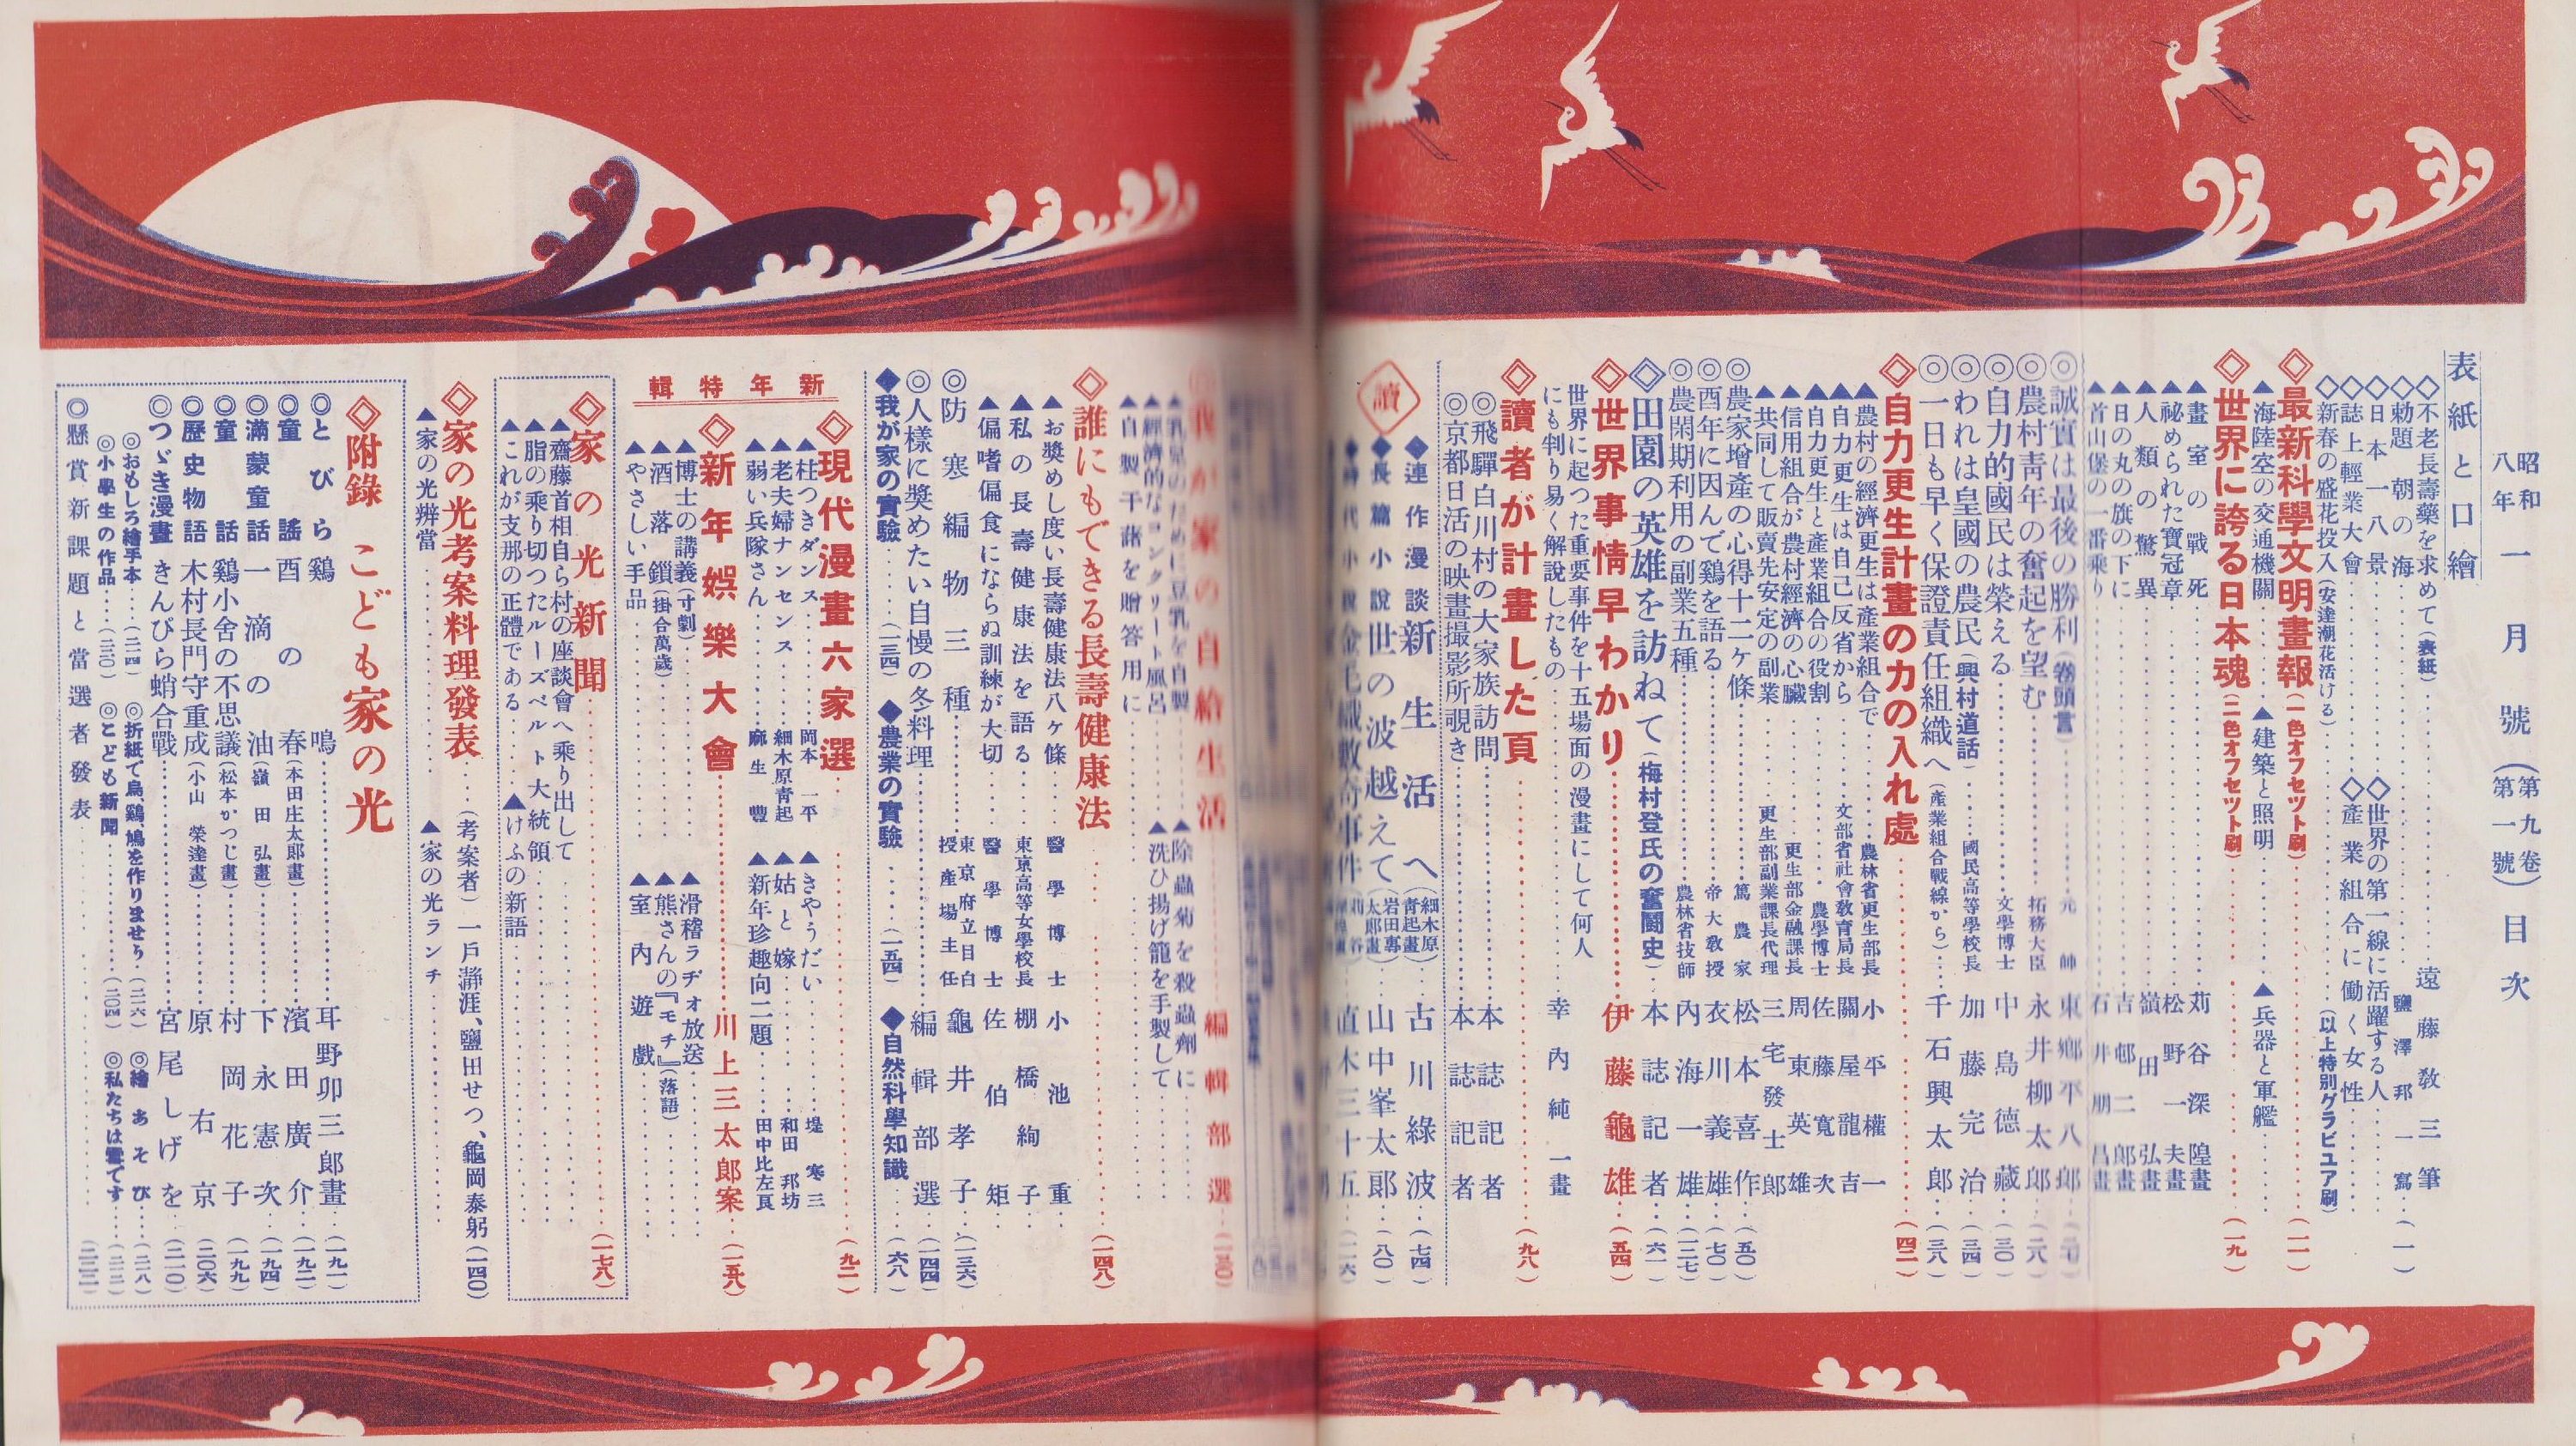 昭和八年 一月號 (第九卷第一號) 目次
表紙と口繪
◇不老長壽藥を求めて(表紙)………遠藤教三筆
◇勅題 朝の海………鹽澤邦一寫…(一)
◇日本一八景……◇世界の第一線に活躍する人……
◇誌上輕業大會……◇產業組合に働く女性……
◇新春の盛花投入(安達潮花活ける)……(以上特別グラビユア刷)
◇最新科學文明畫報(一色オフセツト刷)………(一一)
▲海陸空の交通機關……▲建築と照明……▲兵器と軍艦……
◇世界に誇る日本魂(二色オフセツト刷)………(一九)
▲畫室の戰死………苅谷深隍畫
▲祕められた寶冠章………松野一夫畫
▲人類の驚異………嶺田弘畫
▲日の丸の旗の下に………吉邨二郎畫
▲首山堡の一番乘り………石井朋昌畫
◎誠實は最後の勝利(卷頭言)………元帥 東鄕平八郎
◎農村靑年の奮起を望む………拓務大臣 永井柳太郎…(二八)
◎自力的國民は榮える………文學博士 中島德藏…(三〇)
◎われは皇國の農民(興村道話)………國民高等學校長 加藤完治…(三四)
◎一日も早く保證責任組織へ(產業組合戰線から)…千石興太郎…(三八)
◇自力更生計畫の力の入れ處………(四二)
▲農村の經濟更生は產業組合で………農林省更生部長 小平權一
▲自力更生は自己反省から………文部省社會敎育局長 關屋龍吉
▲自力更生と產業組合の役割………農學博士 佐藤寬次
▲信用組合が農村經濟の心臟………更生部金融課長 周東英雄
▲共同して販賣先安定の副業………更生部副業課長代理 三宅發士郎
◎農家增產の心得十二ケ條………篤農家 松本喜作…(五〇)
◎酉年に因んで鷄を語る………帝大敎授 衣川義雄…(七〇)
◎農閑期利用の副業五種………農林省技師 內海一雄…(一二七)
◇田園の英雄を訪ねて(梅村登氏の奮鬪史)…本誌記者…(六一)
◇世界事情早わかり………伊藤龜雄…(五四)
世界に起つた重要事件を十五場面の漫畫にして何人
にも判り易く解說したもの………幸內純一畫
◇讀者が計畫した頁………(九八)
◎飛驒白川村の大家族訪問………本誌記者
◎京都日活の映畫撮影所覗き………本誌記者
讀
◆連作漫談 新生活へ(細木原靑起畫)…古川綠波…(七四)
◆長篇小說 世の波越えて(岩田專太郎畫)…山中峯太郎…(八〇)
直木三十五…(一一六)
我が家の自給生活………編輯部選
▲除蟲菊を殺蟲劑に……
▲經濟的なコンクリート風呂……▲洗ひ揚げ籠を手製して……
▲自製干藷を贈答用に……
◇誰にもできる長壽健康法………(一四八)
▲お奬めし度い長壽健康法八ケ條……醫學博士 小池重
▲私の長壽健康法を語る……東京高等女學校長 棚橋絢子
▲偏嗜偏食にならぬ訓練が大切……醫學博士 佐伯矩
◎防寒編物三種………東京府立目白授產場主任 龜井孝子…(一三六)
◎人樣に奬めたい自慢の冬料理………編輯部選…(一四四)
◆我が家の實驗……(一三四) ◆農業の實驗……(一五四) ◆自然科學知識……(六八)
新年特輯
◇現代漫畫六家選………(九二)
▲杜つきダンス……岡本一平 ▲きやうだい……堤寒三
▲老夫婦ナンセンス……細木原靑起 ▲姑と嫁……和田邦坊
▲弱い兵隊さん……麻生豐 ▲新年珍趣向二題……田中比左良
◇新年娛樂大會………川上三太郎案…(一五八)
▲博士の講義(寸劇)……▲滑稽ラヂオ放送……
▲酒落鎖(掛合萬歲)……▲熊さんの『モチ』(落語)
▲やさしい手品……▲室內遊戲……
◇家の光新聞………(一七八)
▲齋藤首相自ら村の座談會へ乘り出して……
▲脂の乘り切つたルーズベルト大統領……
▲これが支那の正體である……▲けふの新語……
◇家の光考案料理發表……(考案者)一戶瀞涯、鹽田せつ、龜岡泰躬(一四〇)
▲家の光辨當……▲家の光ランチ……
◇附錄 こども家の光
◎とびら 鷄鳴………耳野卯三郎畫…(一九一)
◎童謠 酉の春(本田庄太郎畫)……濱田廣介…(一九二)
◎滿蒙童話 一滴の油(嶺田弘畫)……下永憲次…(一九四)
◎童話 鷄小舍の不思議(松本かつじ畫)……村岡花子…(一九九)
◎歷史物語 木村長門守重成(小山榮達畫)……原右京…(二〇六)
◎つゞき漫畫 きんぴら蛸合戰………宮尾しげを…(二一〇)
◎おもしろ繪手本……(二一四) ◎折紙で鳥、鷄、鳩を作りませう…(二一六) ◎繪あそび…(二一八)
◎小學生の作品……(二二〇) ◎こども新聞……(二〇四) ◎私たちは雪です……
◎懸賞新課題と當選者發表………